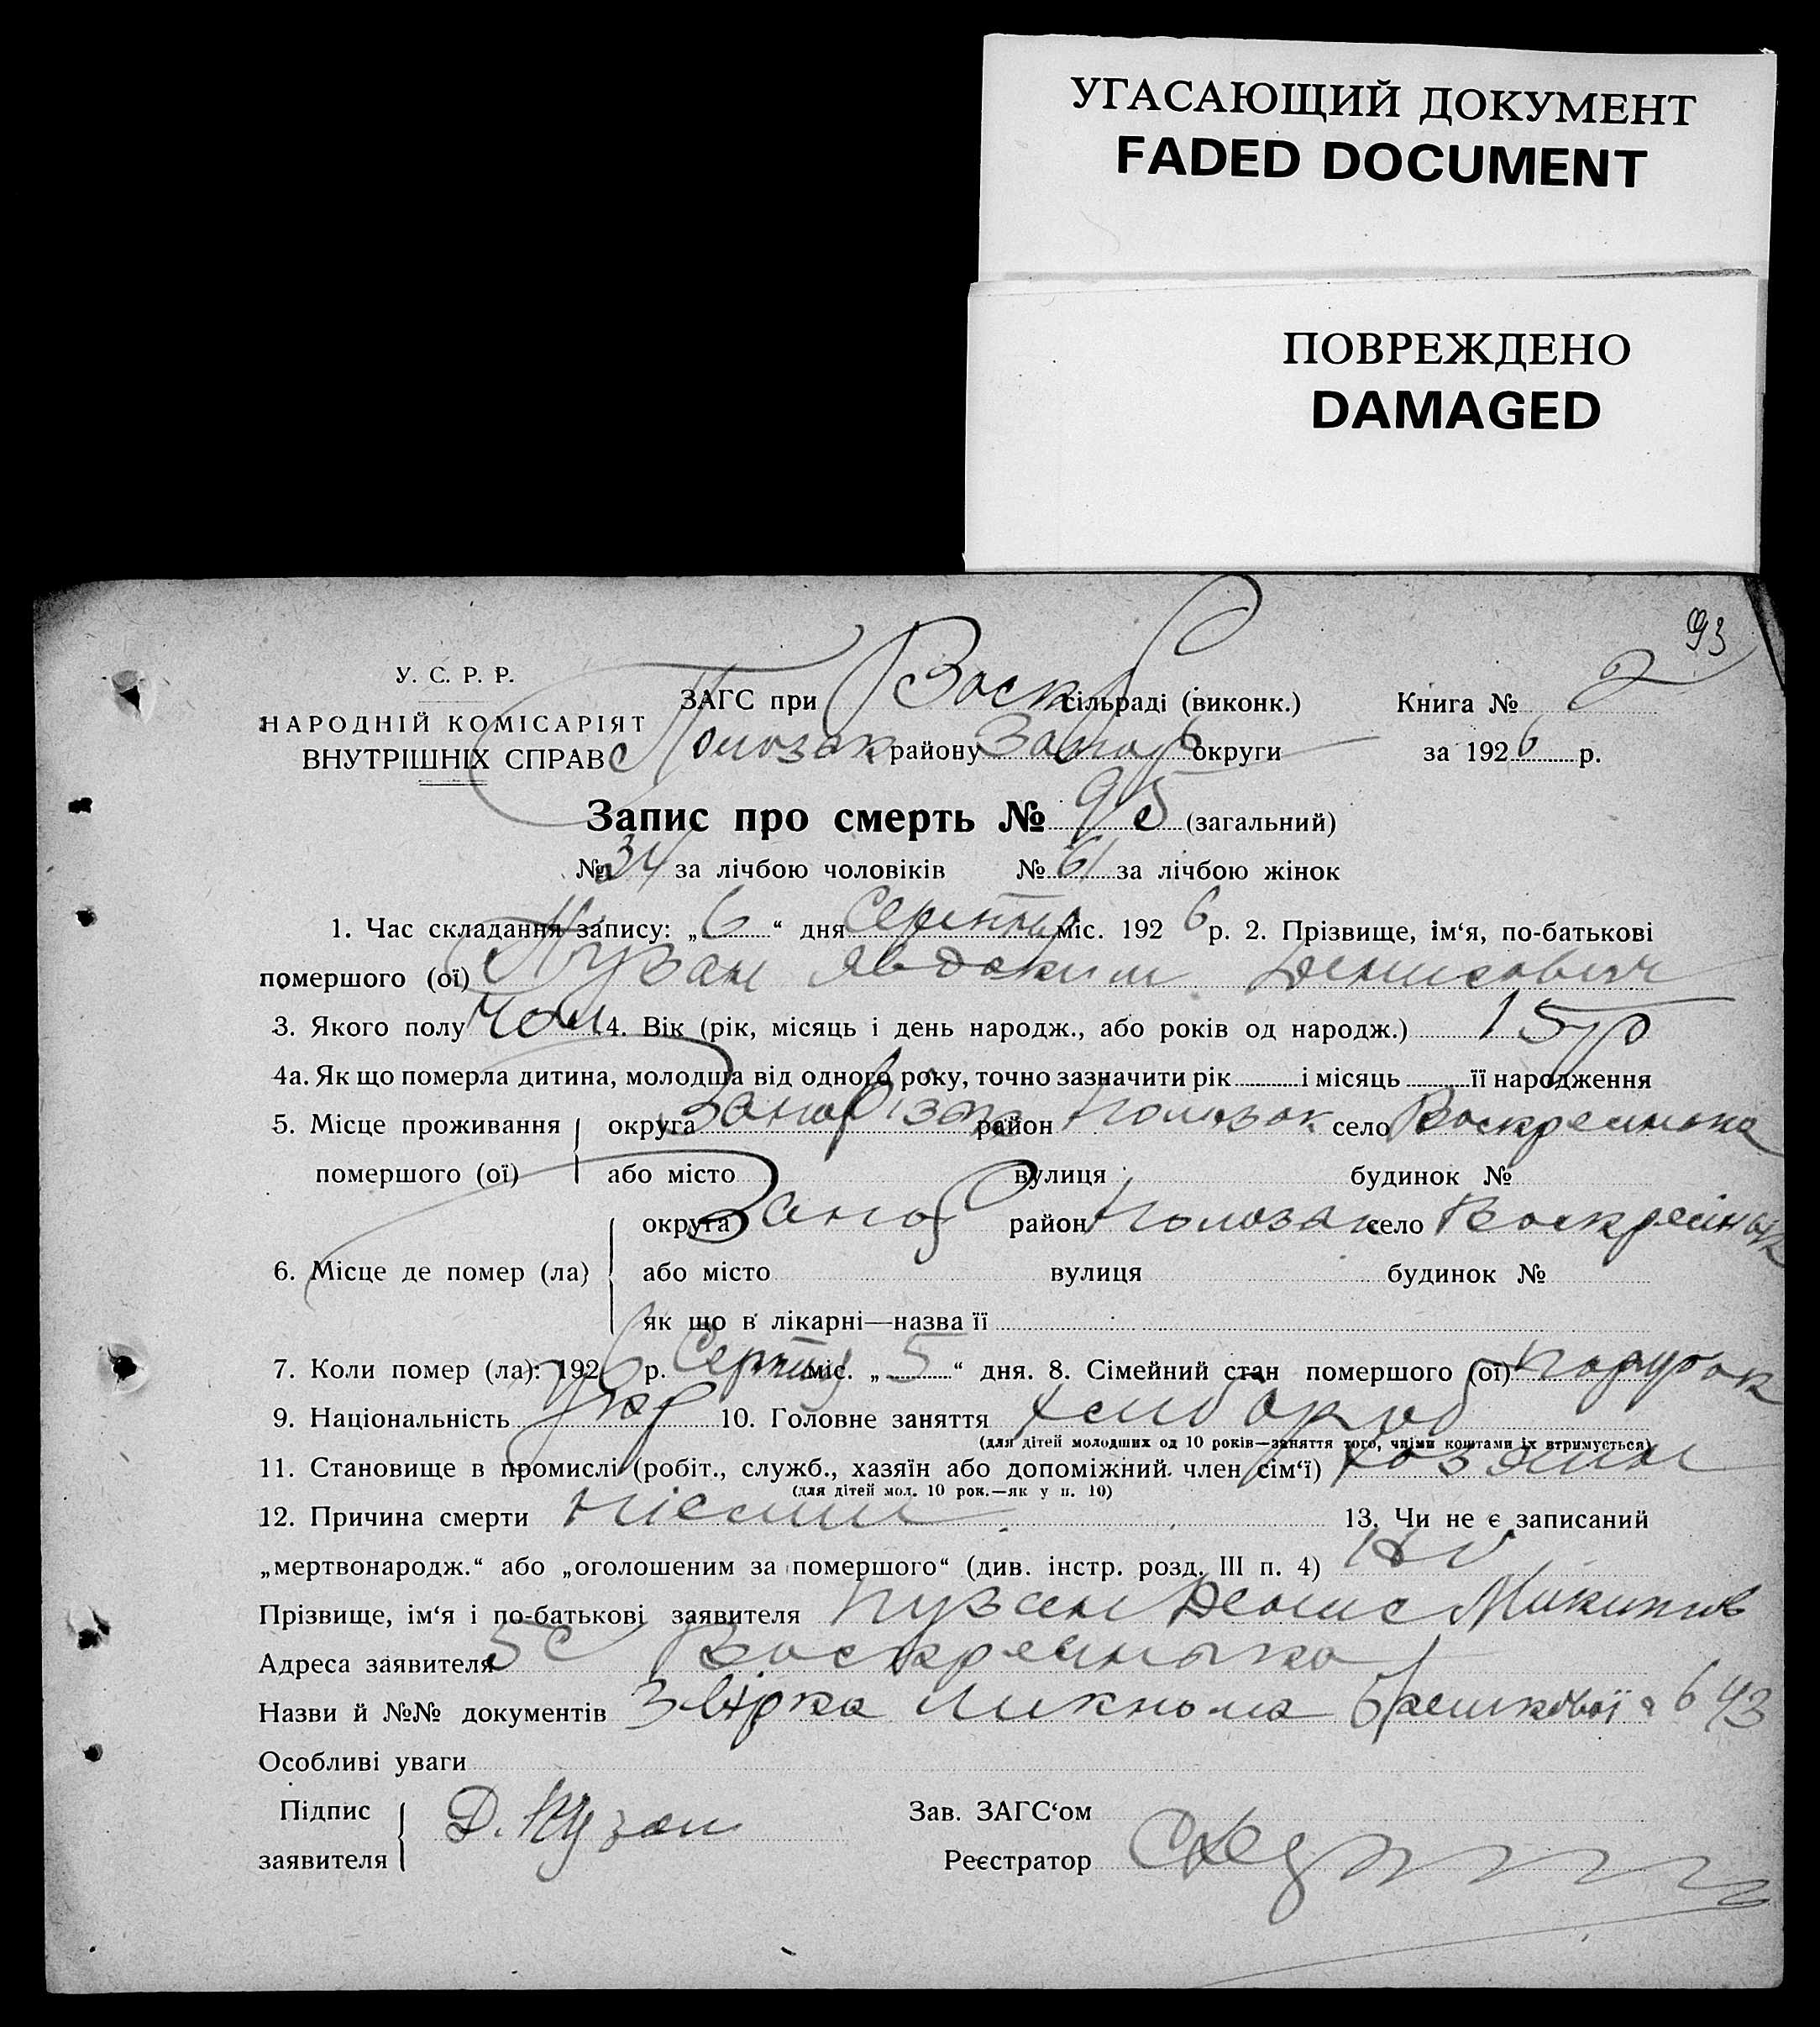 УГАСАЮЩИЙ ДОКУМЕНТ
FADED DOCUMENT
ПОВРЕЖДЕНО
DAMAGED
93
У. С. Р. Р.
НАРОДНІЙ КОМІСАРІЯТ
ВНУТРІШНІХ СПРАВ
ЗАГС при Воскр сільраді (виконк.) Книга № 2
району округи за 1926 р.
Запис про смерть № 95 (загальний)
№ 34 за лічбою чоловіків № 61 за лічбою жінок
1. Час складання запису: „6“ дня Серпня міс. 1926 р. 2. Прізвище, ім‘я, по-батькові
помершого (ої) Пузан Явдоким Денисович
3. Якого полу Чол 4. Вік (рік, місяць і день народж., або років од народж.) 15 р
4а. Як що померла дитина, молодша від одного року, точно зазначити рік і місяць її народження
5. Місце проживання помершого (ої) округа район село
або місто вулиця будинок №
6. Місце де помер (ла) округа Запор район село
або місто вулиця будинок №
як що в лікарні—назва її
7. Коли помер (ла): 1926 р. Серпня міс. „5“ дня. 8. Сімейний стан помершого (ої) парубок
9. Національність Укр 10. Головне заняття хлібороб
(для дітей молодших од 10 років—заняття того, чиїми коштами їх втримується)
11. Становище в промислі (робіт., служб., хазяїн або допоміжний член сім‘ї) хозяин
(для дітей мол. 10 рок.—як у п. 10)
12. Причина смерти 13. Чи не є записаний
„мертвонародж.“ або „оголошеним за помершого“ (див. інстр. розд. III п. 4) Ні
Прізвище, ім‘я і по-батькові заявителя Пузан Денис Микитов
Адреса заявителя
Назви й №№ документів 643
Особливі уваги
Підпис заявителя Д. Пузан
Зав. ЗАГС‘ом
Реєстратор